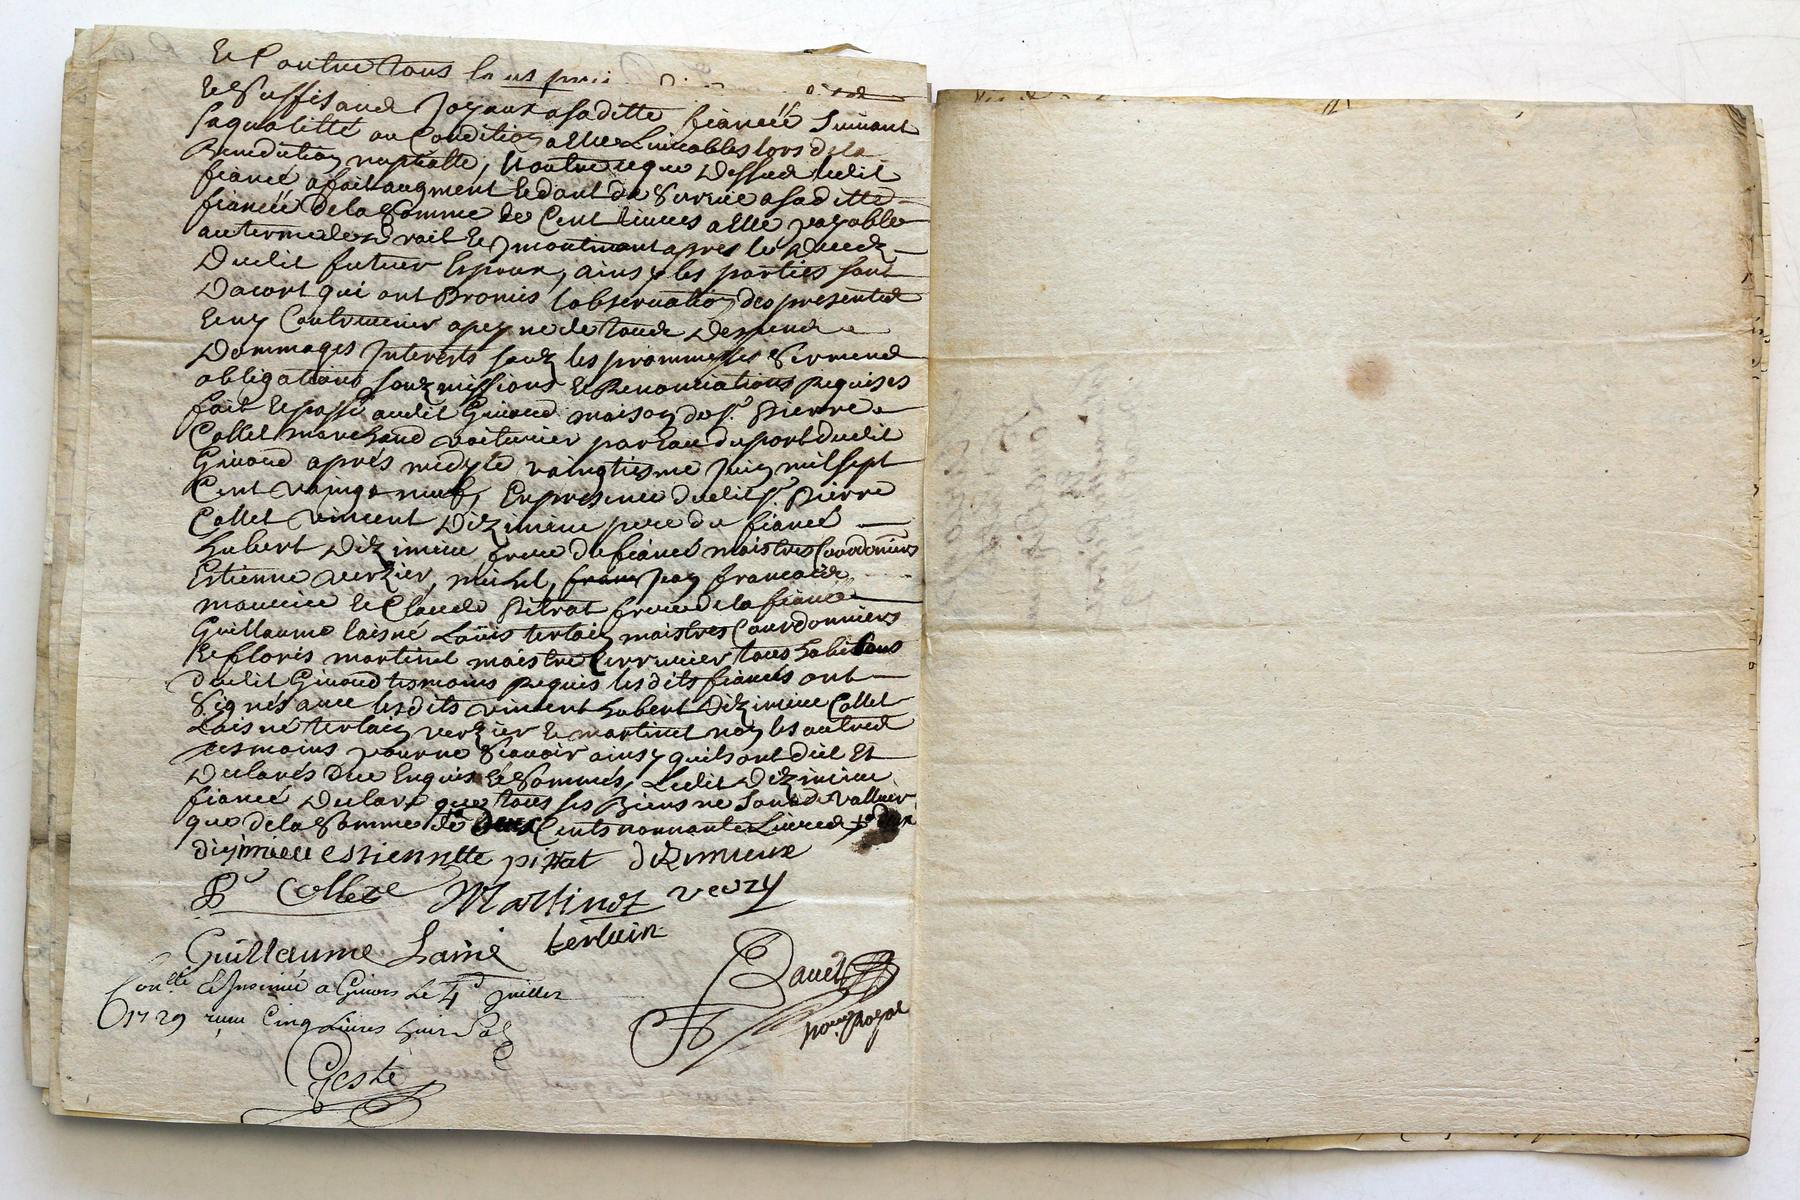 Et Contre tous
Et Suffisand Joyaux a saditte fiancéé Suivant
sa qualitté ou Condition a elle Livrables lors de la
Benediction nuptialle, Et outre ce que Dessus ledit
fiancé a fait augment Et dont de Survie a saditte
fiancéé de la Somme de Cent Livres a elle payable
au terme de droit Et montant apres le deced
Dudit futeur Epoux, ainsy les parties sont
Dacort qui ont Promis lobservation des presented
Et ny Contrevenir a peyne de toud Despend
Dommages Interests souz les prommesses Serment
obligations souzmissions Et Renonciations Requises
fait Et passé audit Givord maison de Sr. Pierre
Collet marchand voiturier par Eau du port dudit
Givord aprés midy le vaingtiesme Juin mil sept
Cent vaingt neuf, En presence dudit Sr. Pierre
Collet vincent Dizimieu pere du fiancé
hubert Dizimieu frere du fiancé maistres Courdoniers
Estienne verzier, michel, Jean francois
maurice Et Claude Pitrat freres de la fiancéé
Guillaume laisné Louis terlain maistres Courdonniers
Et floris martinet maistre Serrurier tous habitans
dudit Givord tesmoins Requis lesdits fiancés ont
Signés avec lesdits vincent hubert Dizimieu Collet
Laisné terlain verzier Et martinet non les autred
tesmoins pour ne Scavoir ainsy quils ont dit Et
Declarés Due Enquis Et Sommés, Ledit Dizimieu
fiancé Declare que tous ses Biens ne sont de valleur
que de la Somme de Cents nonnante Livred
dizimieu estiennette pitrat dizimieux
P Collet Martinet verzy
Guillaume Lainé terlain
Conllé Et Insinué a Givors Le 4e Juillet
1729 reçu Cinq Livres huit Sols
Bauet
Geste
nore. Royal